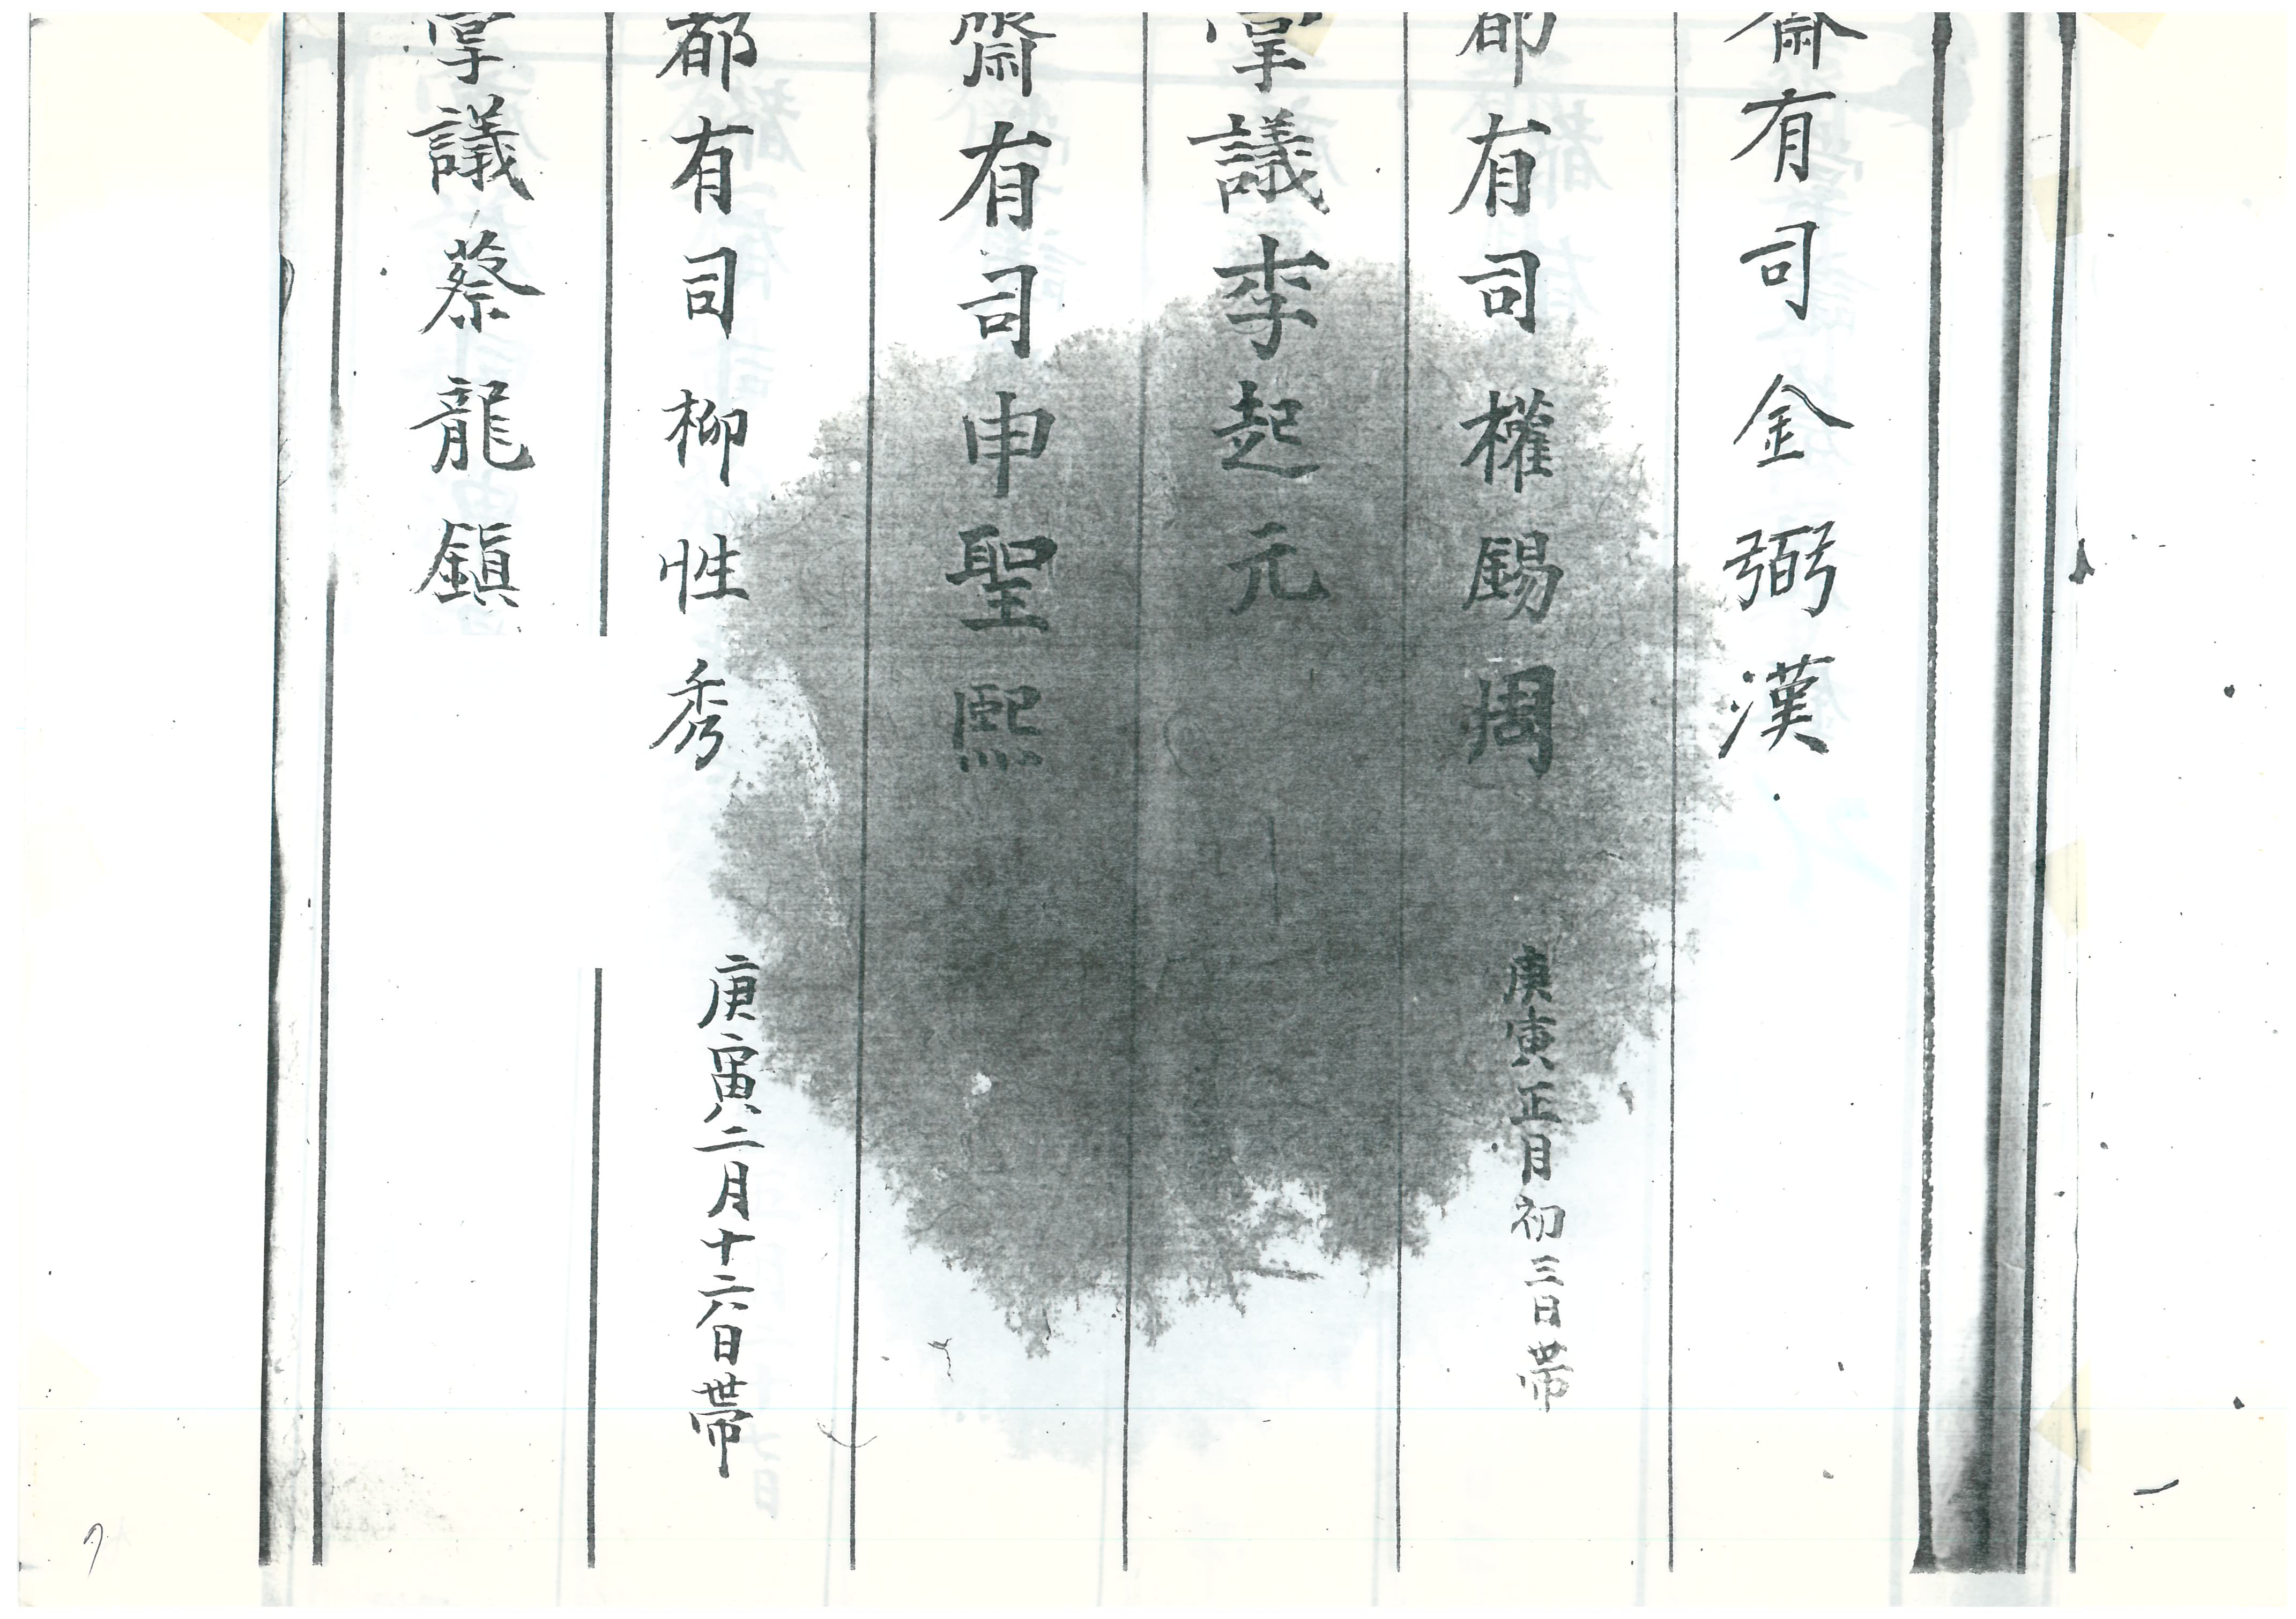 齋有司金弼漢
都有司權錫周 庚寅正月初三日帶
掌議李起元
齋有司申聖熙
都有司柳性秀 庚寅二月十六日帶
掌議蔡龍鎭